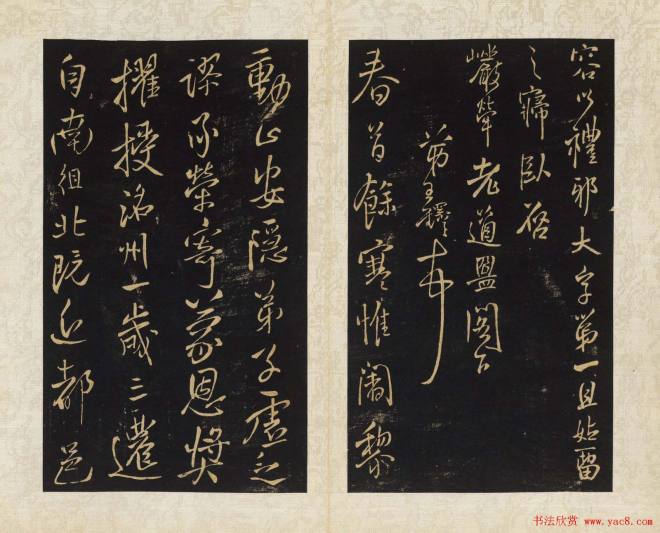 容以禮邪大字第一且姑留
之 臥
巖犖老道盟閣下
弟王鐸
春首餘寒惟闍黎
動止安隱弟子虛乏
謬承榮寄蒙恩獎
擢授洺州一歲三遷
自南徂北既近都邑
书法欣赏 www.yac8.com